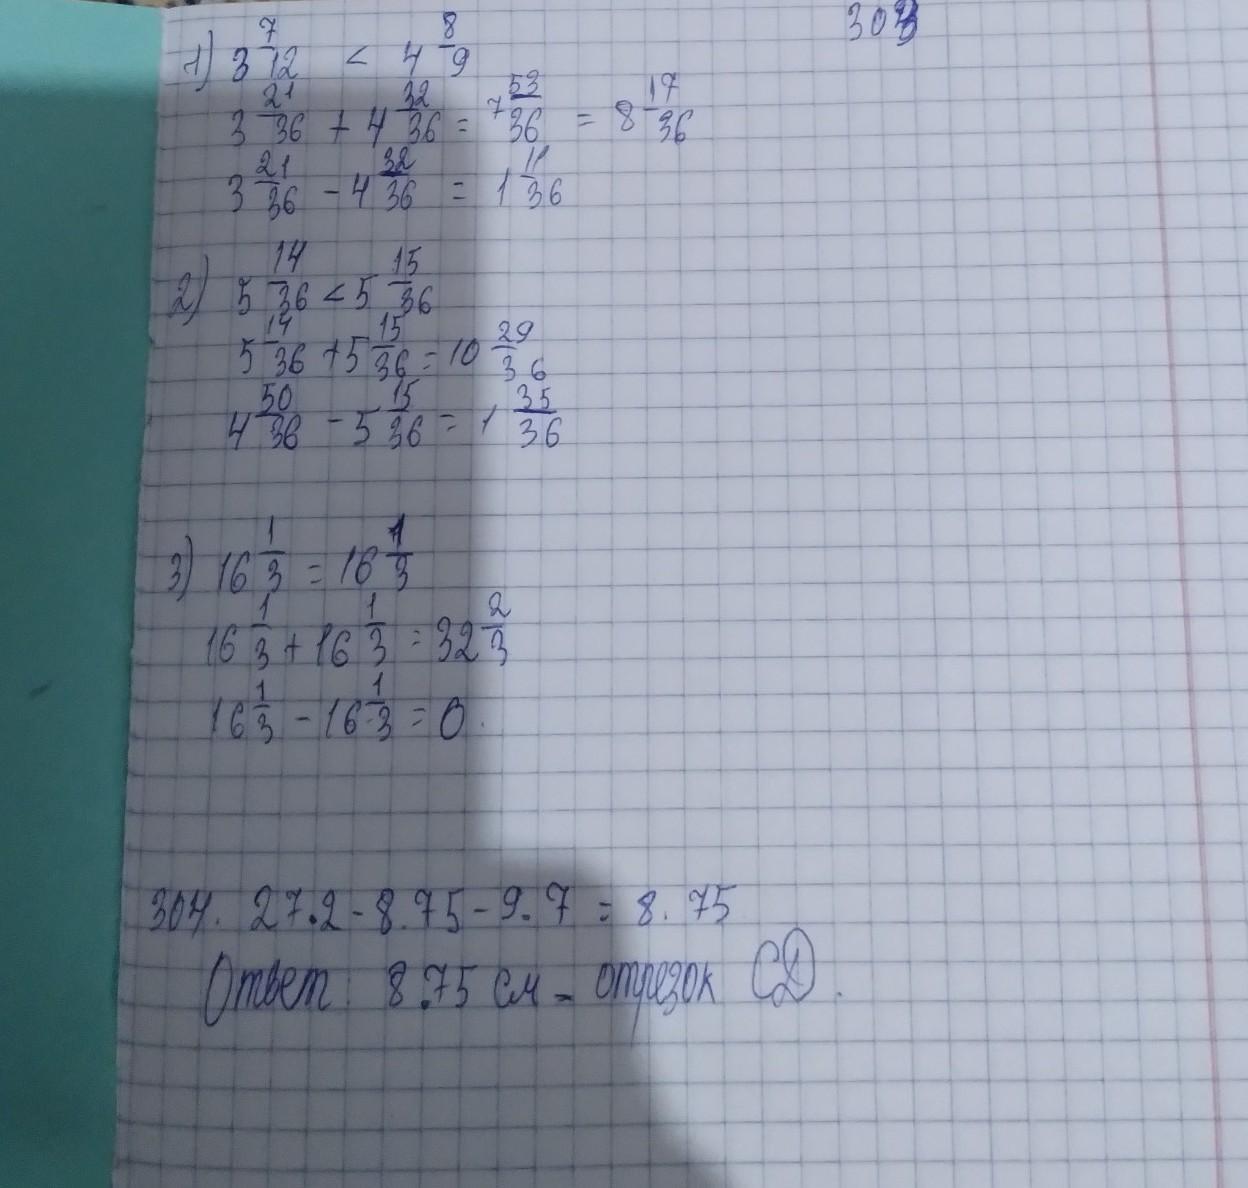 303
1) 3 7/12 < 4 8/9
3 21/36 + 4 32/36 = 7 53/36 = 8 17/36
3 21/36 - 4 32/36 = 1 11/36
2) 5 14/36 < 5 15/36
5 14/36 + 5 15/36 = 10 29/36
4 50/36 - 5 15/36 = 1 35/36
3) 16 1/3 = 16 1/3
16 1/3 + 16 1/3 = 32 2/3
16 1/3 - 16 1/3 = 0.
304. 27.2 - 8.75 - 9.7 = 8.75
Ответ: 8.75 см - отрезок СД.